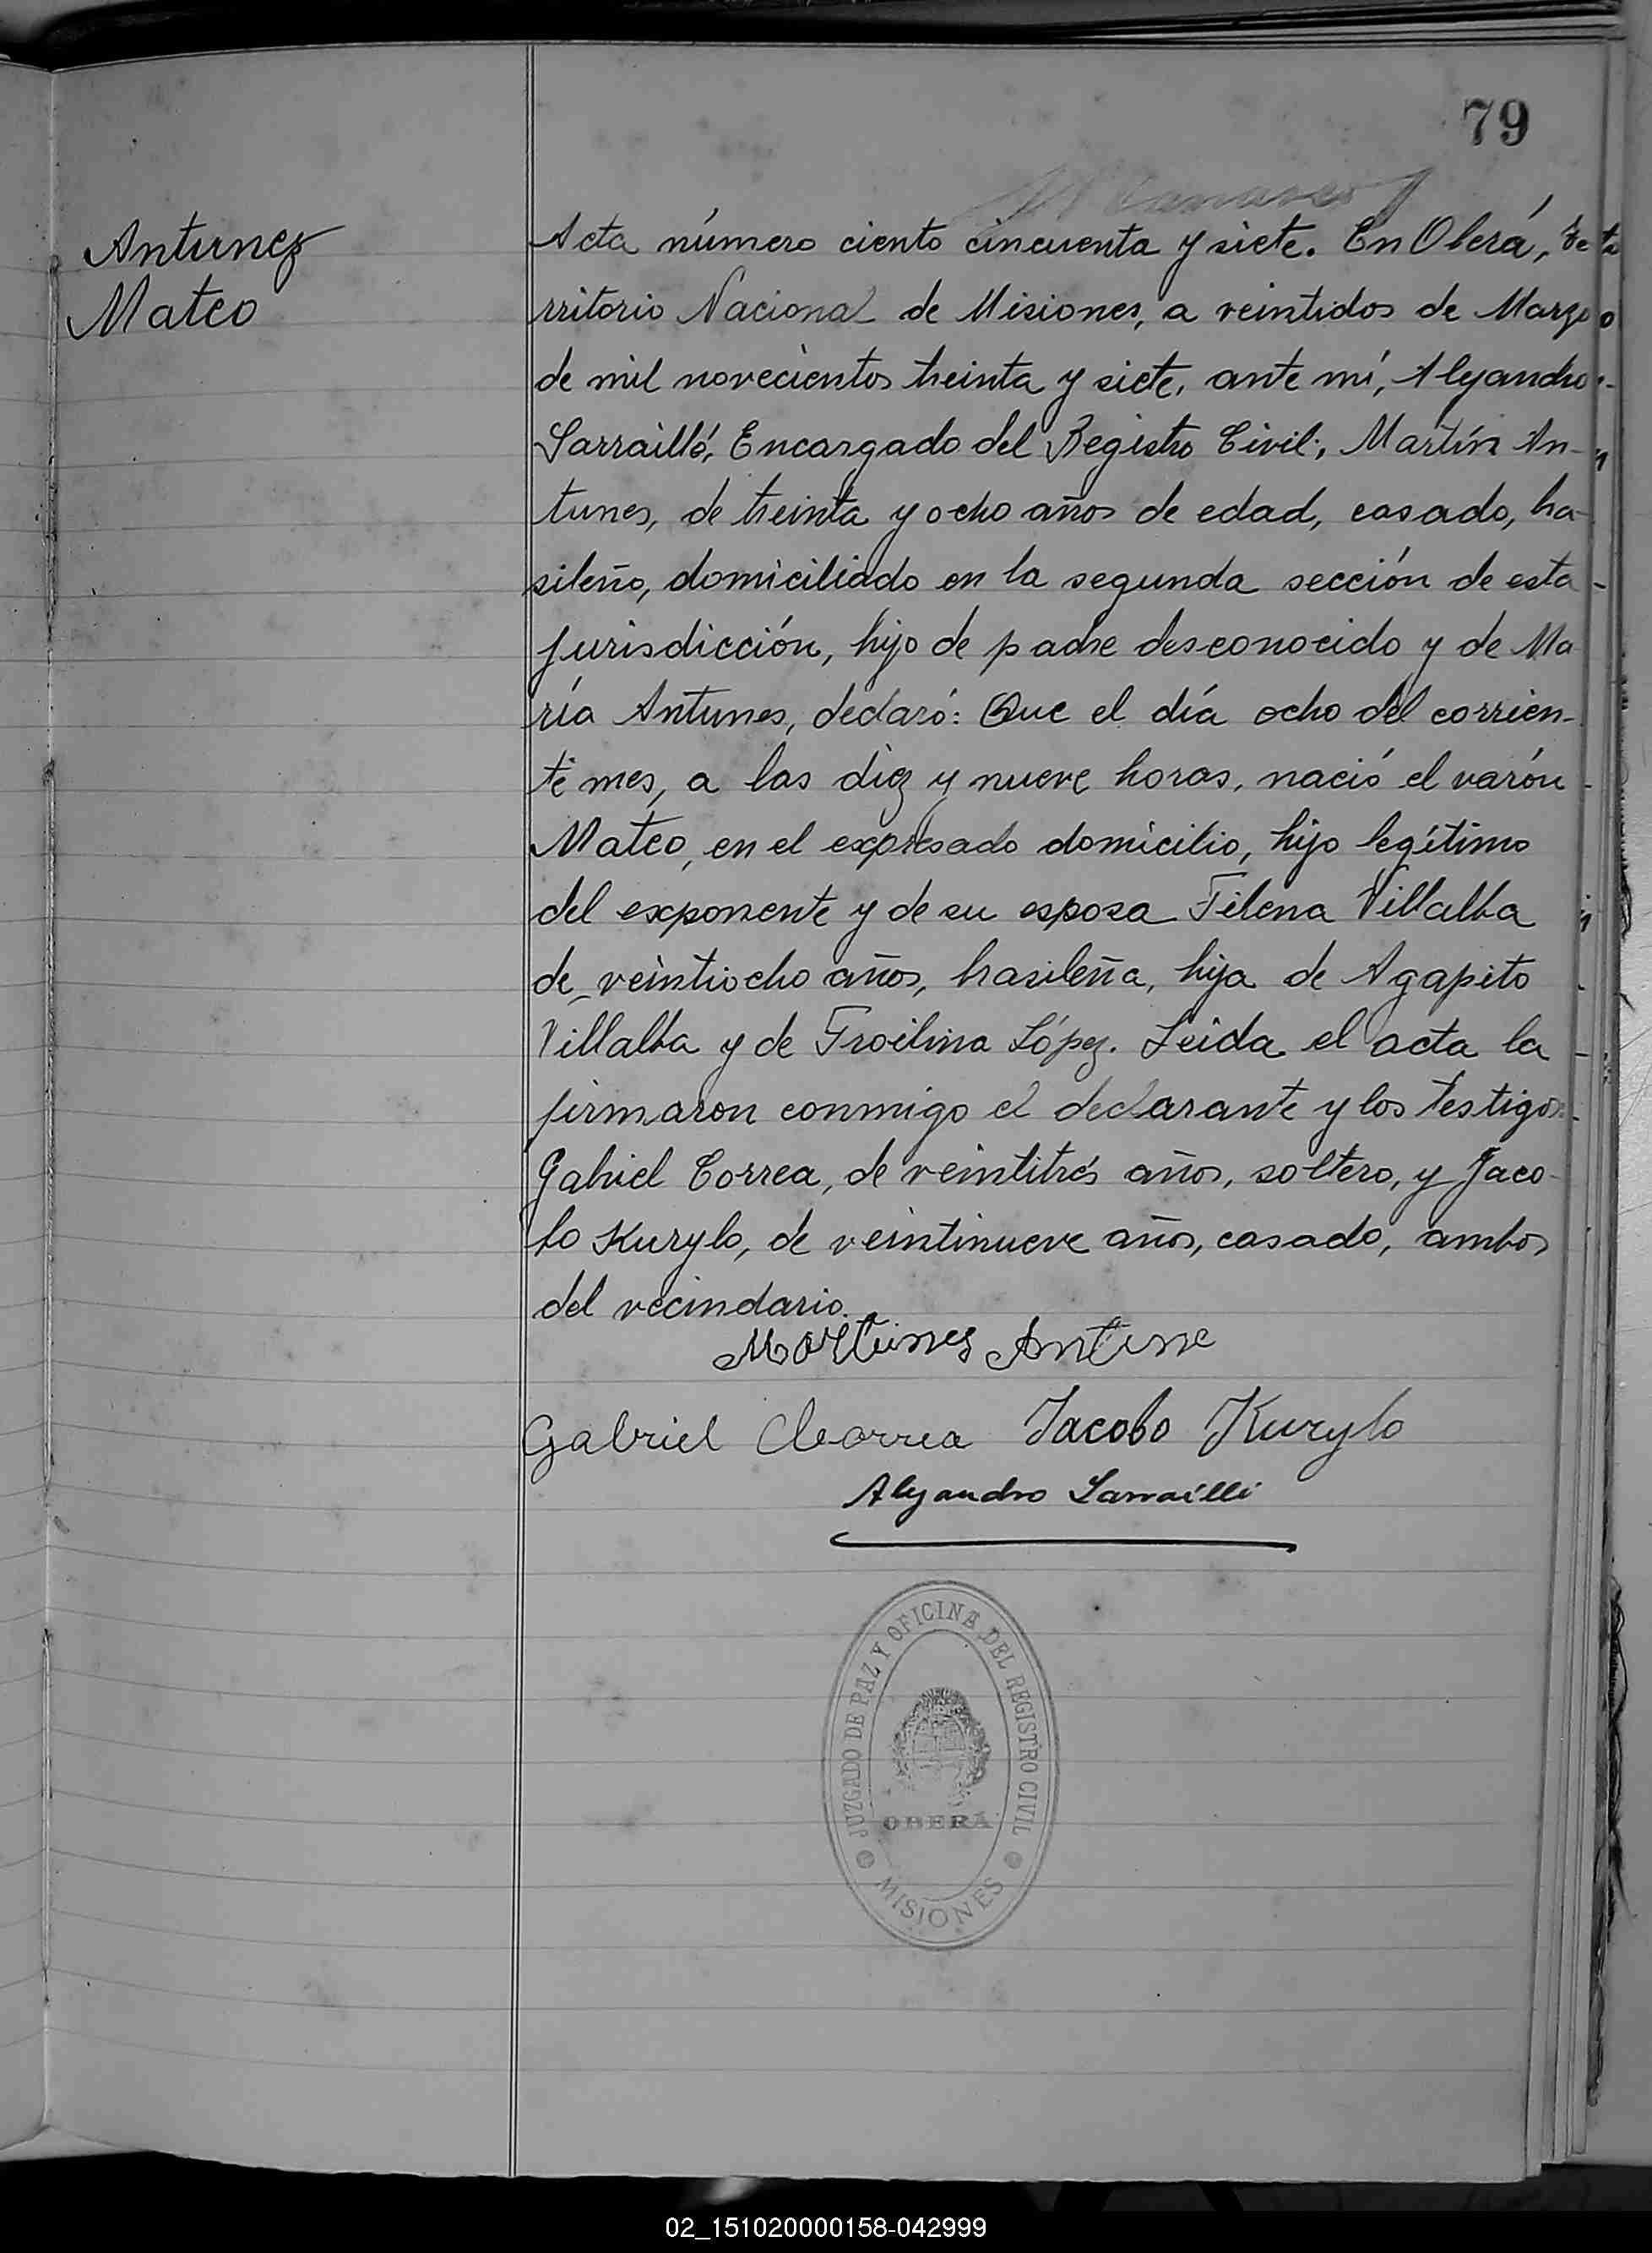 79
Antunez
Mateo
Acta número ciento cincuenta y siete. En Oberá, Te
rritorio Nacional de Misiones, a veintidos de Marzo
de mil novecientos treinta y siete, ante mí, Alejandro
Sarraillé, Encargado del Registro Civil, Martín An-
tunes, de treinta y ocho años de edad, casado, bra-
sileño, domiciliado en la segunda sección de esta
jurisdicción, hijo de padre desconocido y de Ma
ría Antunes, declaró: Que el día ocho del corrien-
te mes, a las diez y nueve horas, nació el varón
Mateo, en el expresado domicilio, hijo legítimo
del exponente y de su esposa Filena Villalba
de veintiocho años, brasileña, hija de Agapito
Villalba y de Froilina López. Leida el acta la
firmaron conmigo el declarante y los testigos
Gabriel Correa, de veintitrés años, soltero, y Jaco-
bo Kurylo, de veintinueve años, casado, ambos
del vecindario.
Martines Antune
Gabriel Correa Jacobo Kurylo
Alejandro Sarraillé
JUZGADO DE PAZ Y OFICINA DEL REGISTRO CIVIL
OBERÁ
MISIONES
02_151020000158-042999